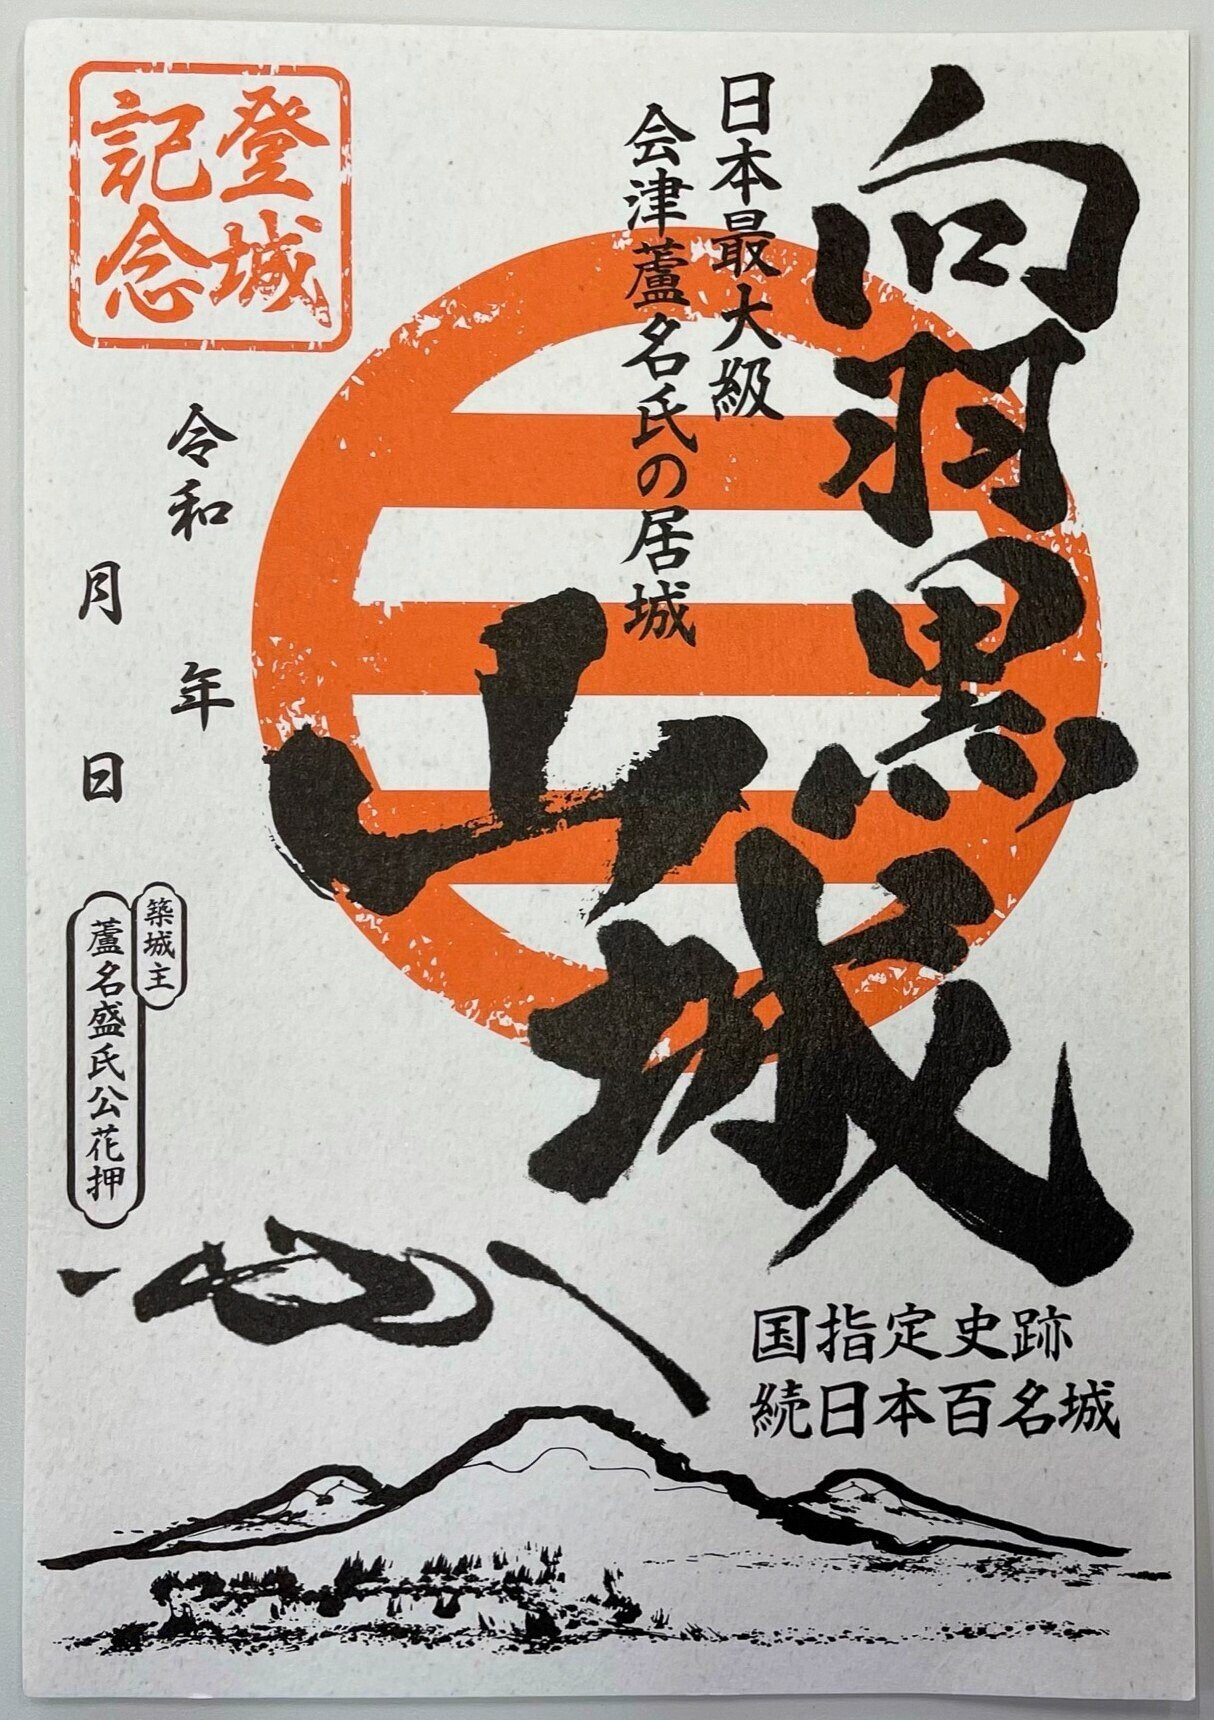 向羽黒山城
日本最大級
会津蘆名氏の居城
登城
記念
令和　年
月　日
築城主
蘆名盛氏公花押
国指定史跡
続日本百名城